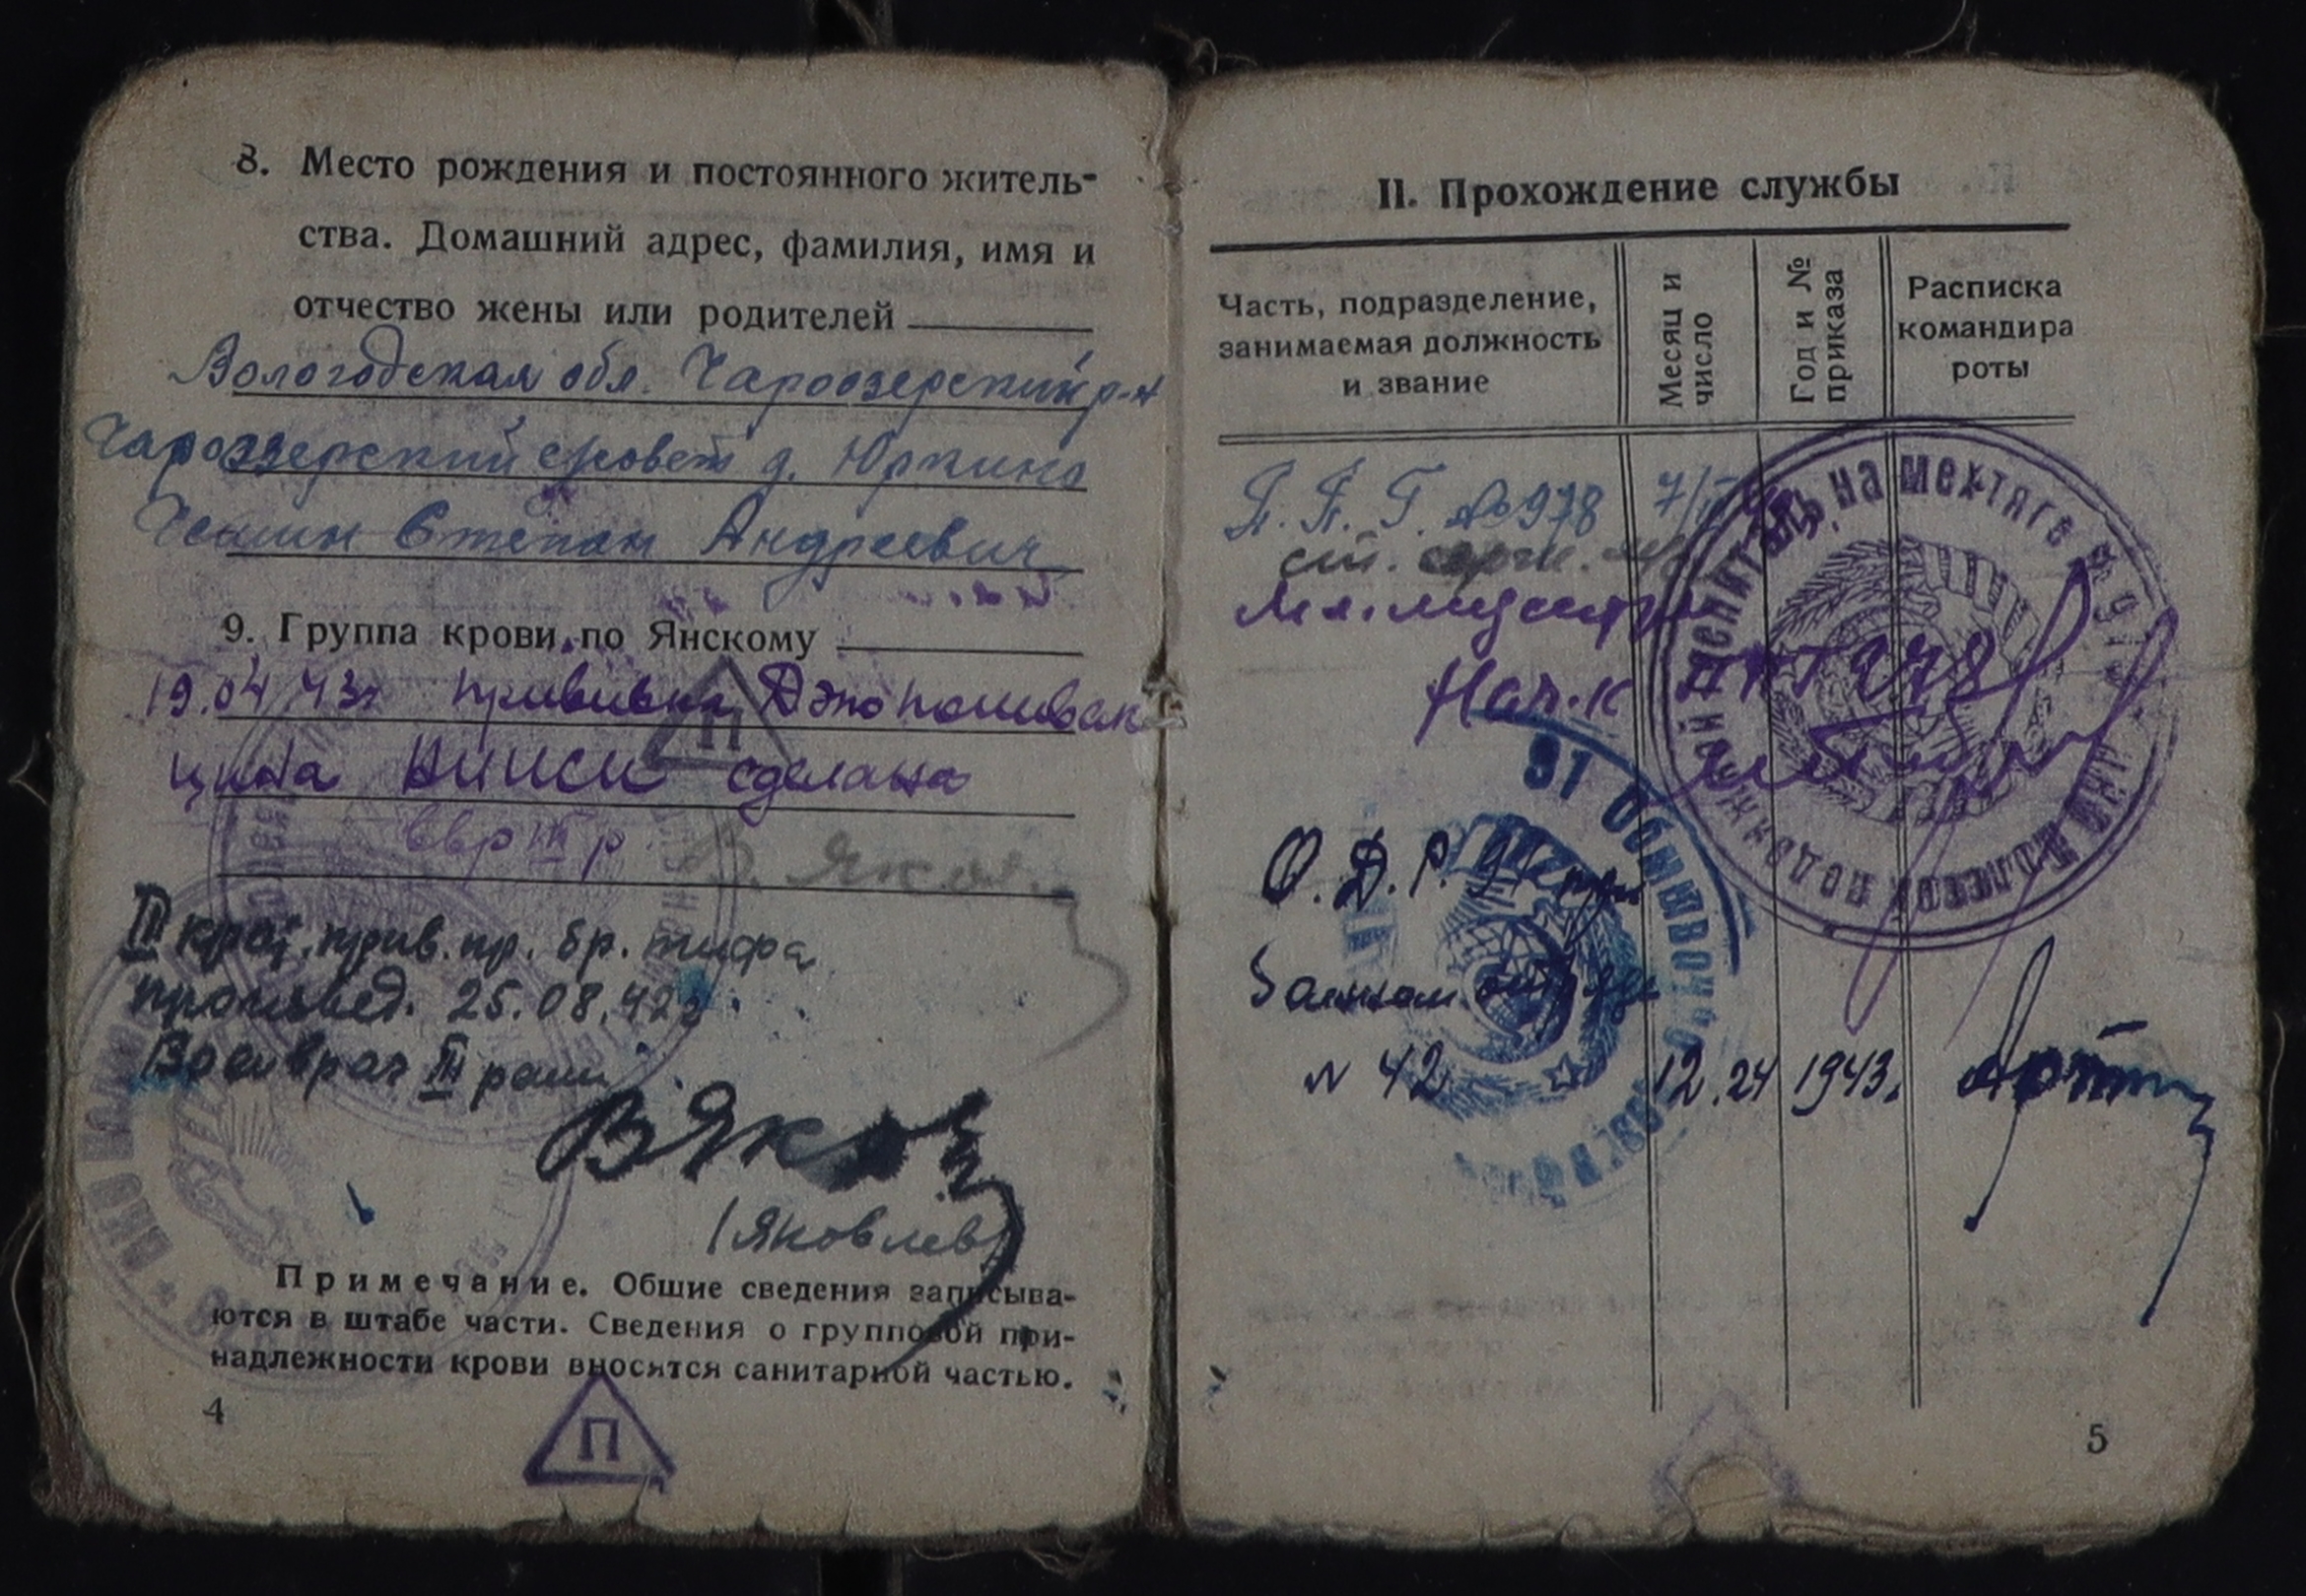 8. Место рождения и постоянного житель-
ства. Домашний адрес, фамилия, имя и
отчество жены или родителей
Вологодская обл. Чарозерский р-н
Чарозерский с/совет д. Юркино
Степан Андреевич
9. Группа крови по Янскому
19.04 43г прививка
цина НИИСИ сделана
П
ввр III р.
В. Яков
III крат. прив. пр. бр. тифа
произвед. 25.08.42г.
Воен врач III ранг
В Яков
(Яковлев)
Примечание. Общие сведения записыва-
ются в штабе части. Сведения о групповой при-
надлежности крови вносятся санитарной частью.
4
П
II. Прохождение службы
Часть, подразделение,
занимаемая должность
и звание
Месяц и
число
Год и №
приказа
Расписка
командира
роты
П. П. Г. №978
ст.
Мл. медсестра
Нач-к ППГ 978
О. Д. Р.
N 42 12.24 1943г.
5